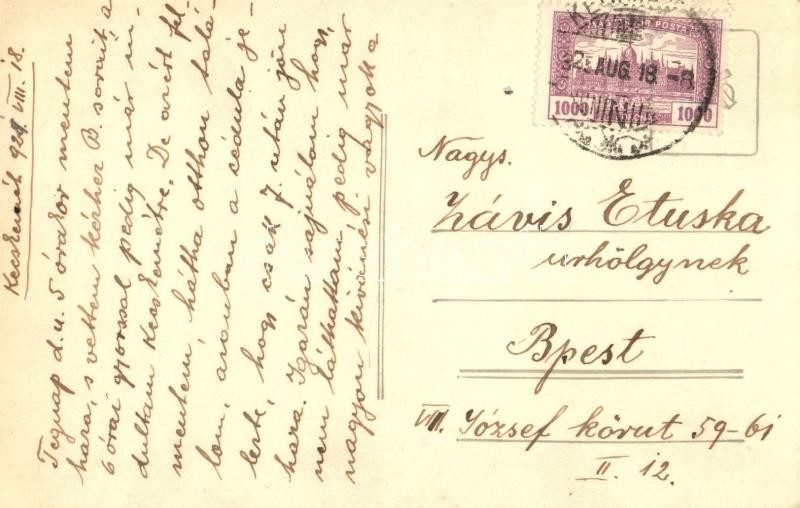 Kecskemét 925 VIII. 18.
Tegnap d.u. 5 órakor mentem
haza, s vettem kézhez B. sorait a
6 órai gyorssal pedig már in-
dultam Kecskemétre. De azért fel-
mentem, hátha otthon talá-
lom, azonban a cédula je-
lezte, hogy csak 7. után jön
haza. Igazán sajnálom hogy
nem láthattam, pedig már
nagyon kiváncsi vagyok a
MAGYAR KIR. POSTA
925 AUG. 18 - 8
1000 KORONA 1000
Nagys.
Závis Etuska
urhölgynek
Bpest
VIII. József körut 59-61
II. 12.